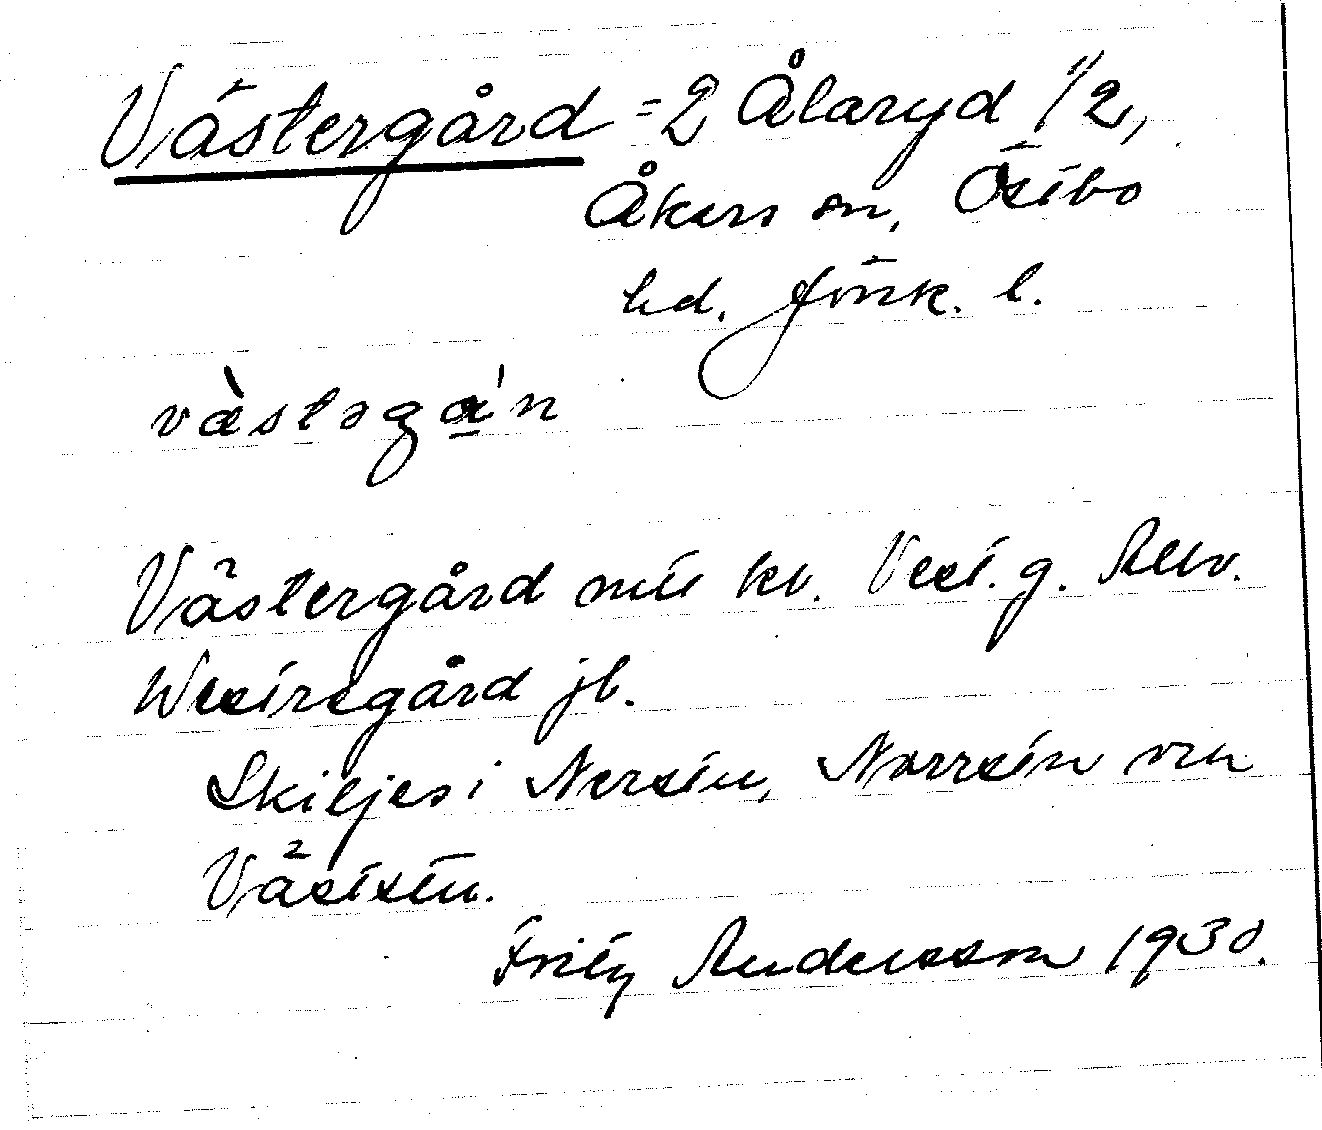 Västergård = 2 Ålaryd 1/2,
Åkers sn, Östbo
hd. Jönk. l.
vàstəgɑ́n
Västergård mtl kv. Vest. g. Allv.
Westregård jb.
Skiljes i Nersta, Norrsta och
Väststa.
Fritz Andersson 1930.